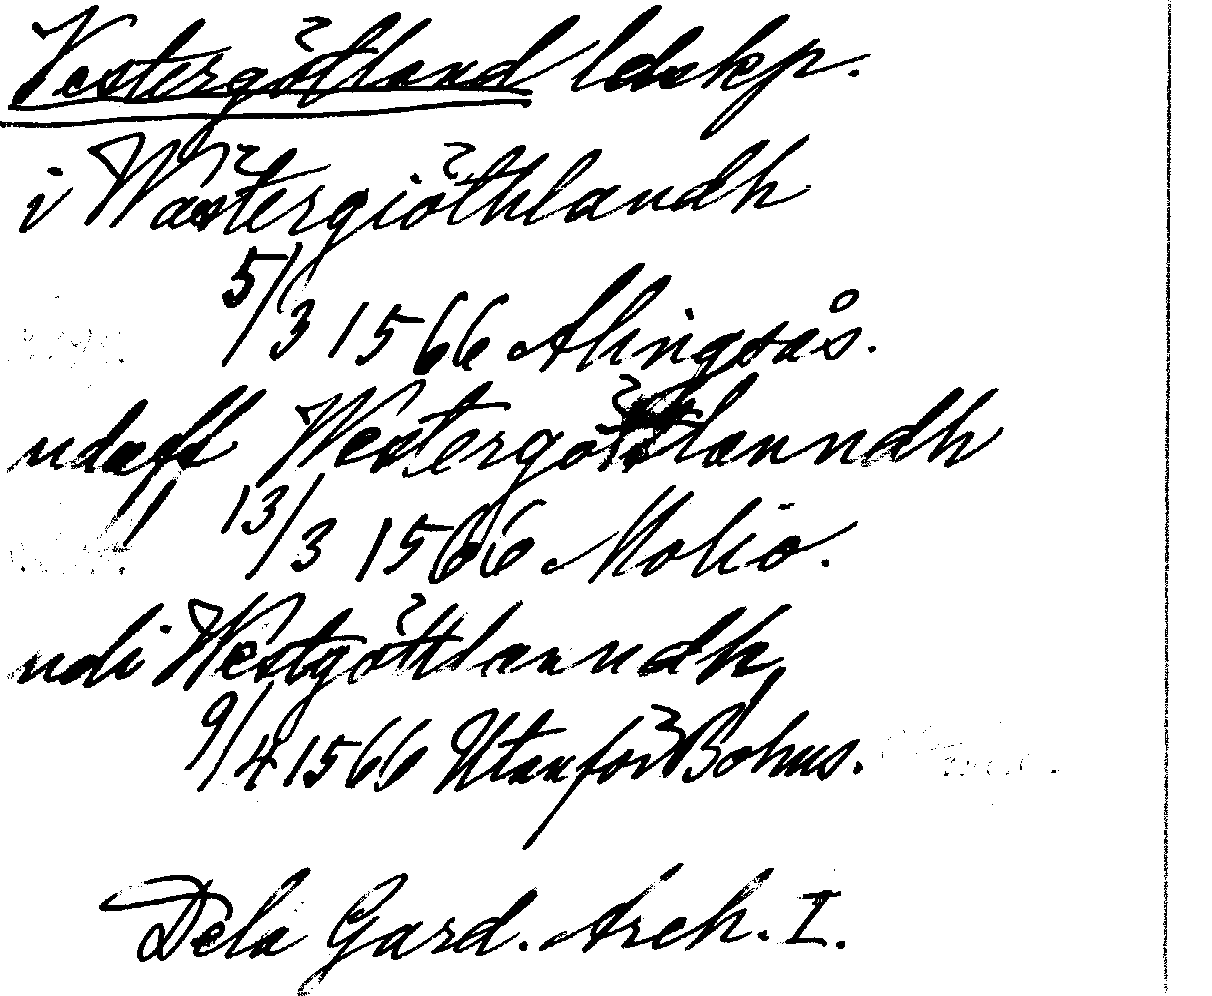 Vestergötland ldskp.
i Wästergiöthlandh
5/3 1566 Alingsås.
udaff Westergöttlanndh
13/3 1566 Molio.
udi Westgöttlanndh
9/4 1566 Utanför Bohus.
Dela Gard. Arch. I.